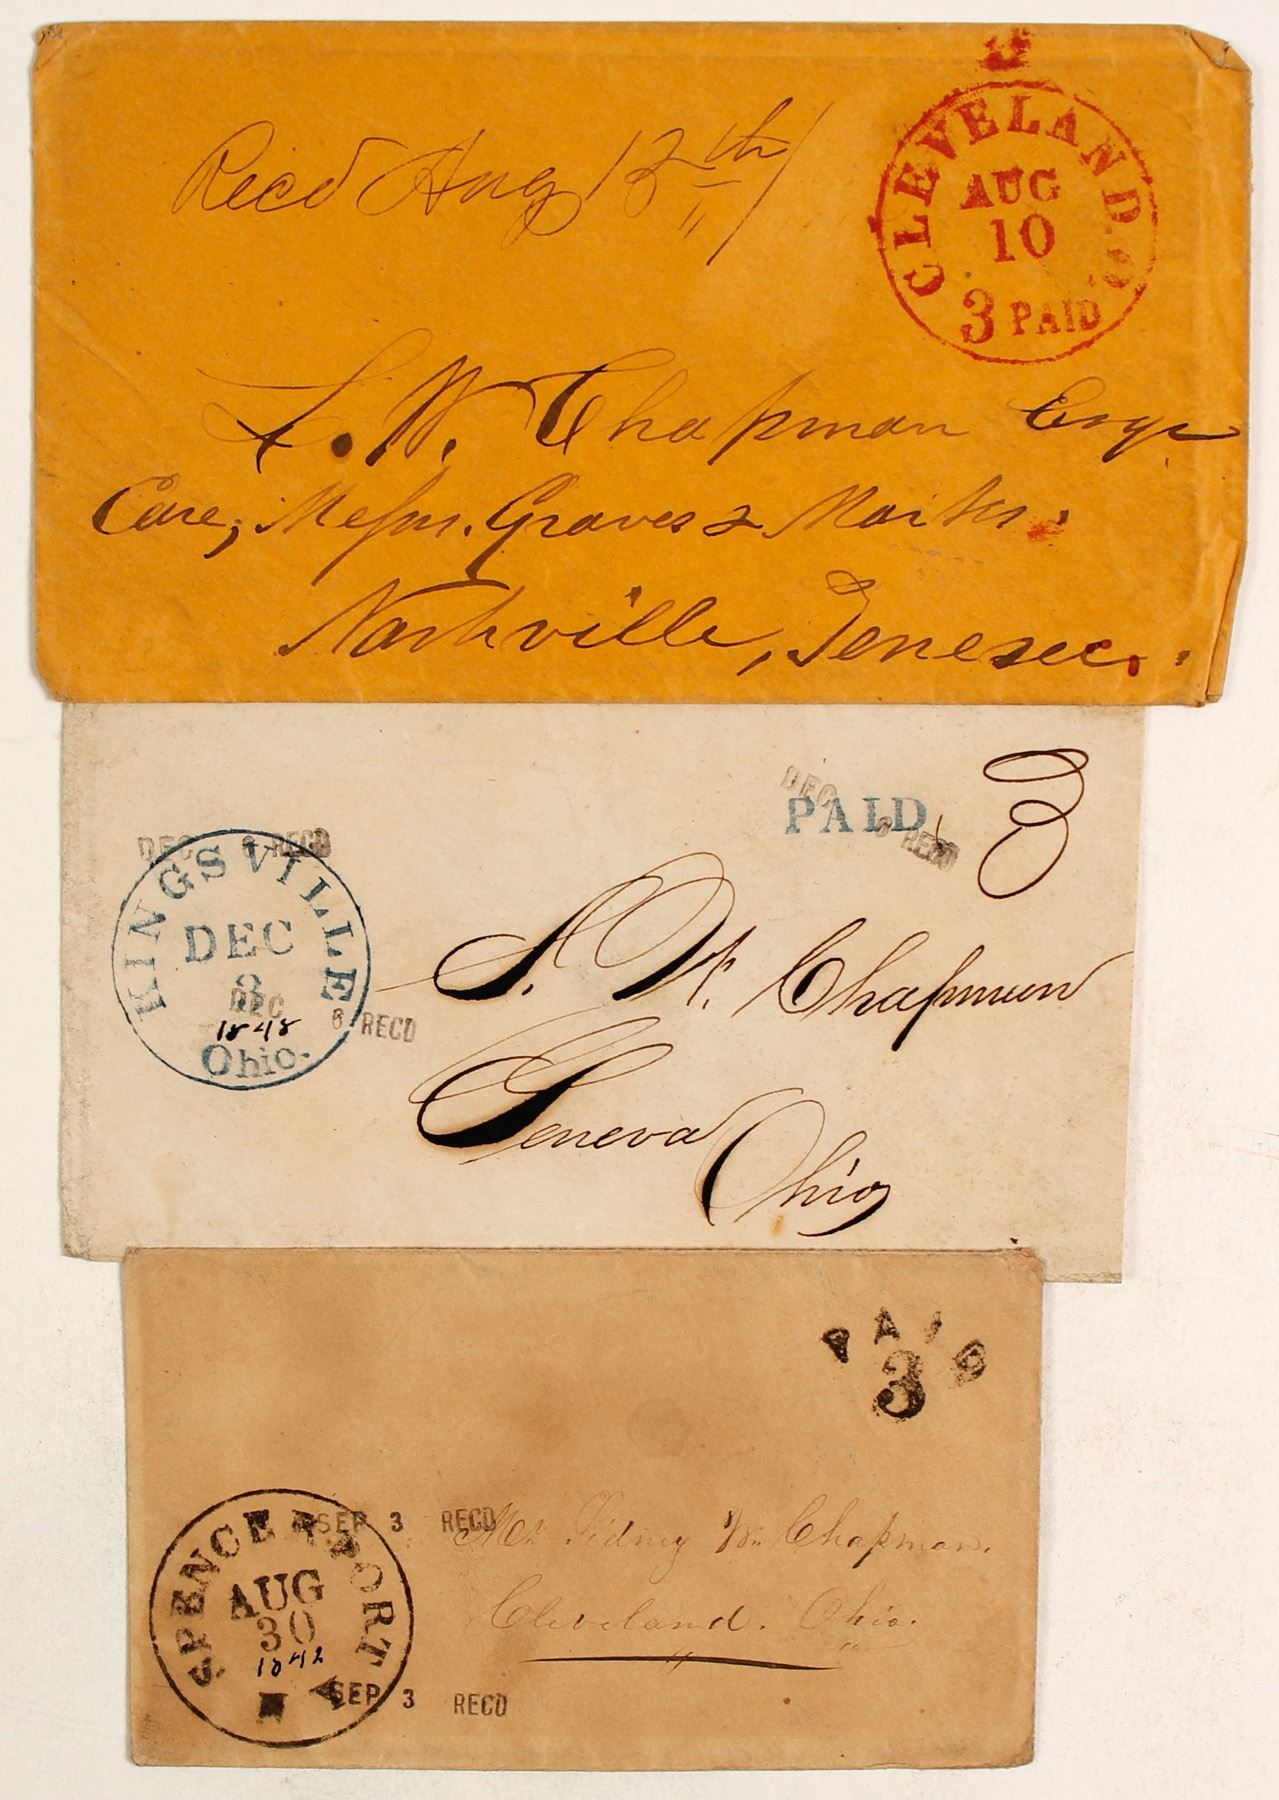 Recd Aug 13th
CLEVELAND. O.
AUG
10
3 PAID
S. W. Chapman Esqr
Care, Messrs. Graves & Marks.
Nashville, Tenesee.
DEC
PAID
6 RECD
3
DEC 6 RECD
KINGSVILLE
DEC
3
DEC 6 RECD
1848
Ohio.
S. W. Chapman
Geneva
Ohio
PAID
3
SPENCERPORT
AUG
30
1842
N
SEP 3 RECD
Mr. Sidney W. Chapman.
Cleveland. Ohio.
SEP 3 RECD